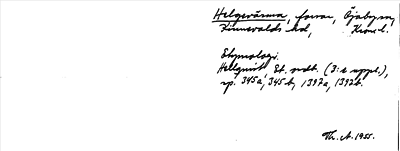 Helgevärma, försvar, Öjaby sn,
Kinnevalds hd, Kronob. l.
Etymologi.
Hellquist Et. ordb. (3:e uppl.),
sp. 345a, 345b, 1397a, 1392b.
Th. A. 1955.